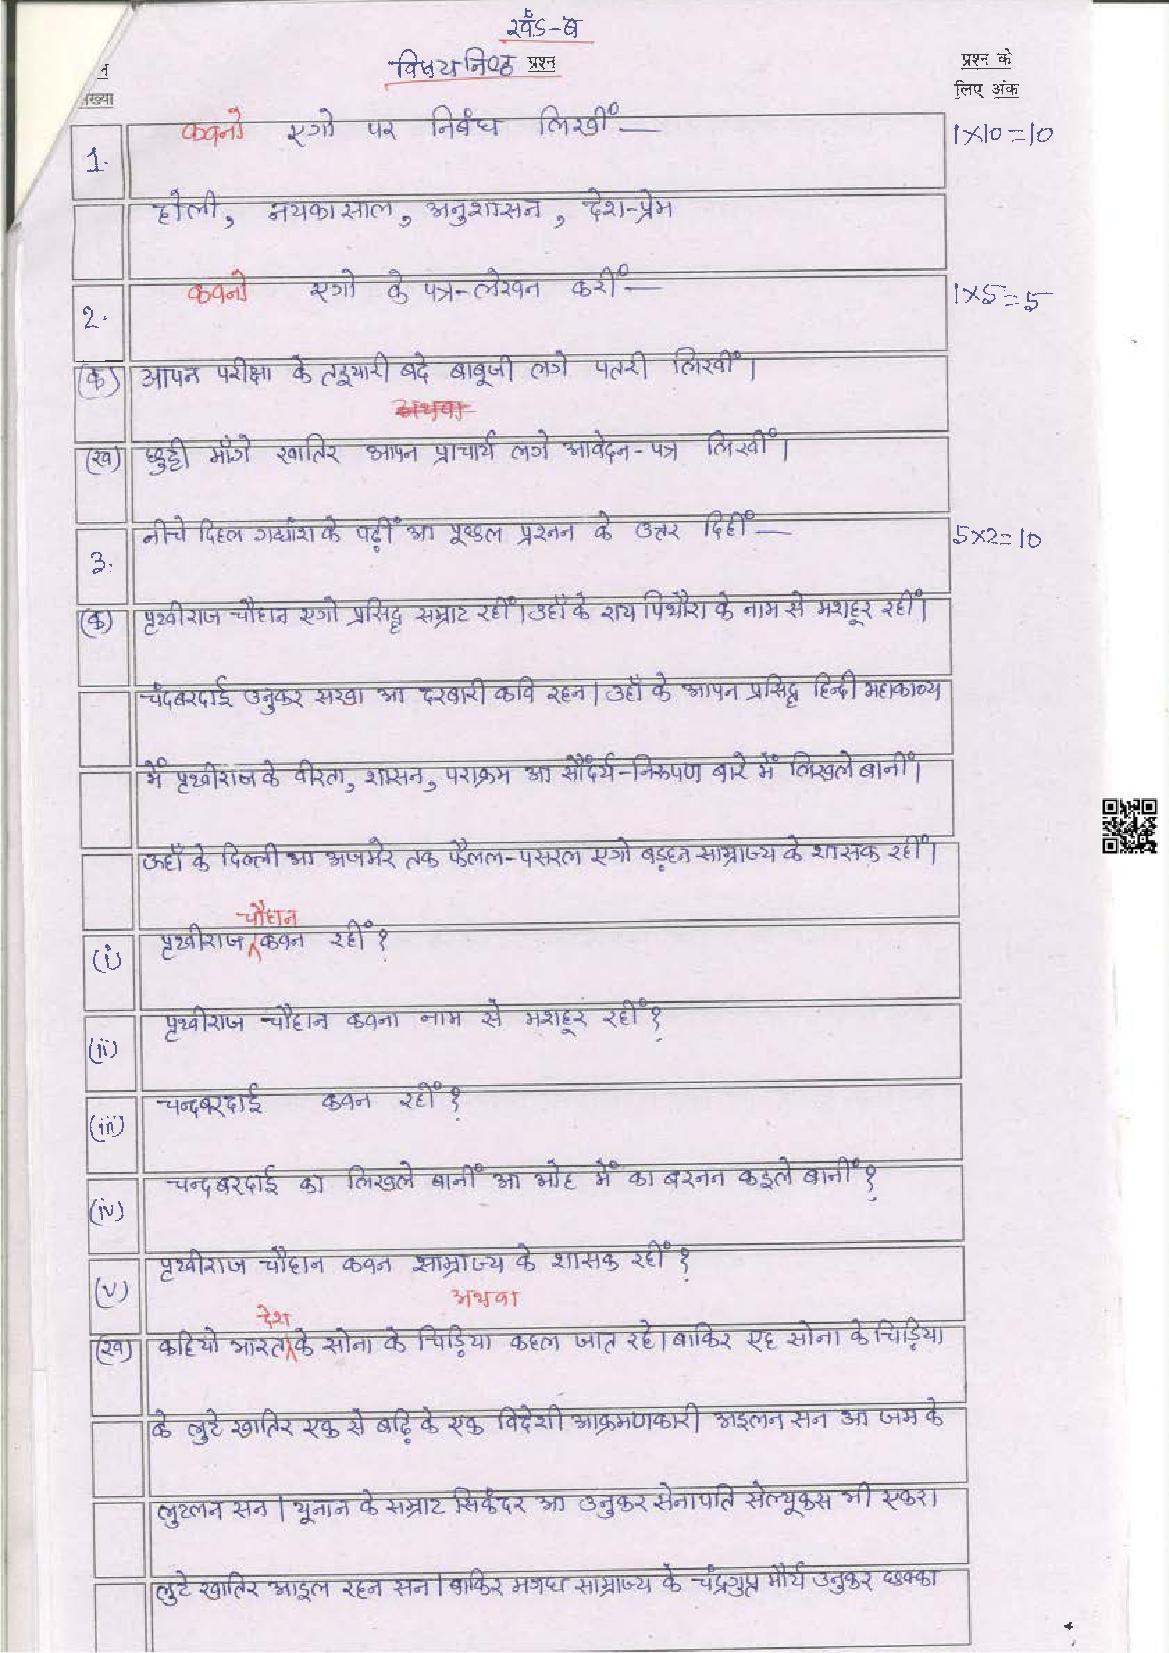 खंड-ब
विषयनिष्ठ प्रश्न
प्रश्न के
लिए अंक
न
ख्या
1. कवनो एगो पर निबंध लिखीं — 1×10=10
होली, नयका साल, अनुशासन, देश-प्रेम
2. कवनो एगो के पत्र-लेखन करीं — 1×5=5
(क) आपन परीक्षा के तइयारी बदे बाबूजी लगे पतरी लिखीं।
अथवा
(ख) छुट्टी माँगे खातिर आपन प्राचार्य लगे आवेदन-पत्र लिखीं।
3. नीचे दिहल गद्यांश के पढ़ीं आ पूछल प्रश्नन के उत्तर दिहीं — 5×2=10
(क) पृथ्वीराज चौहान एगो प्रसिद्ध सम्राट रहीं। उहाँ के राय पिथौरा के नाम से मशहूर रहीं।
चंदबरदाई उनुकर सखा आ दरबारी कवि रहन। उहाँ के आपन प्रसिद्ध हिन्दी महाकाव्य
में पृथ्वीराज के वीरता, शासन, पराक्रम आ सौंदर्य-निरूपण बारे में लिखले बानीं।
उहाँ के दिल्ली आ अजमेर तक फैलल-पसरल एगो बड़हन साम्राज्य के शासक रहीं।
(i) पृथ्वीराज चौहान कवन रहीं?
(ii) पृथ्वीराज चौहान कवना नाम से मशहूर रहीं?
(iii) चन्दबरदाई कवन रहीं?
(iv) चन्दबरदाई का लिखले बानीं आ ओह में का बरनन कइले बानीं?
(v) पृथ्वीराज चौहान कवन साम्राज्य के शासक रहीं?
अथवा
(ख) कहियो भारत देश के सोना के चिड़िया कहल जात रहे। बाकिर एह सोना के चिड़िया
के लुटे खातिर एक से बढ़ि के एक विदेशी आक्रमणकारी अइलन सन आ जम के
लुटलन सन। यूनान के सम्राट सिकंदर आ उनुकर सेनापति सेल्यूकस भी एकरा
लुटे खातिर आइल रहन सन। बाकिर मगध साम्राज्य के चंद्रगुप्त मौर्य उनुकर छक्का